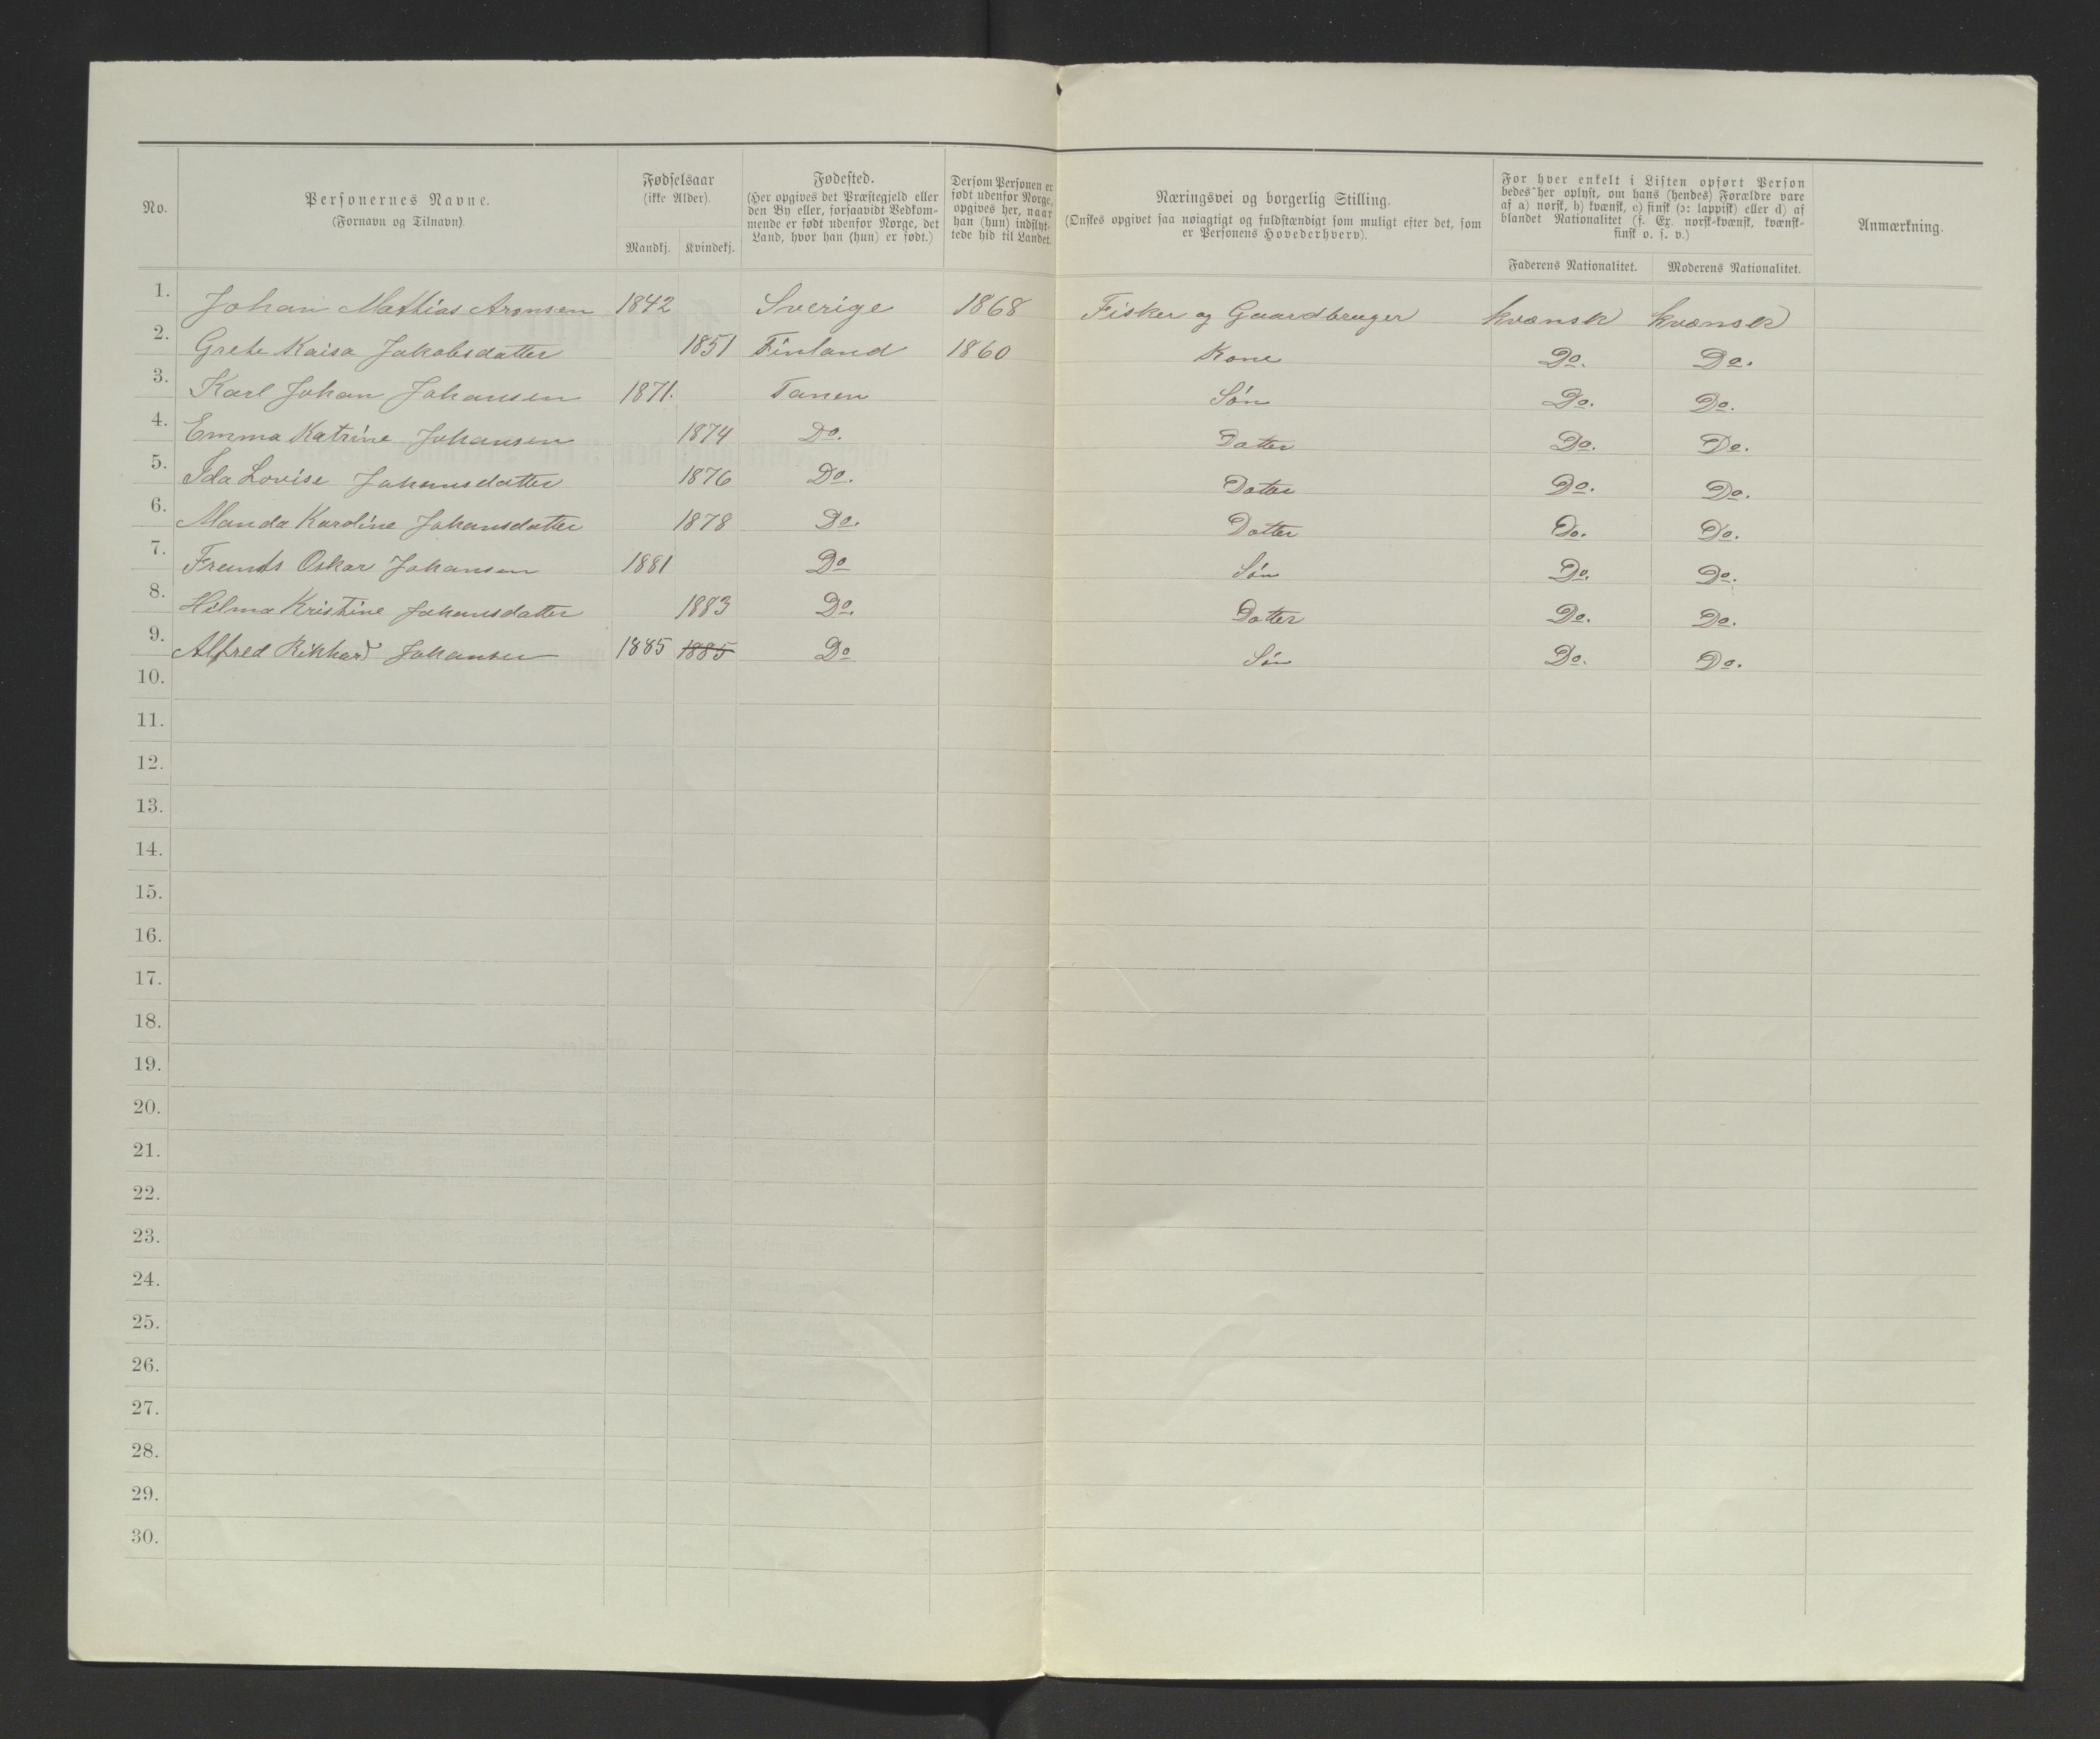 No.
Personernes Navne.
(Fornavn og Tilnavn)
Fødselsaar
(ikke Alder).
Mandkj. Kvindekj.
Fødested.
(Her opgives det Præstegjeld eller
den By eller, forsaavidt Vedkom-
mende er født udenfor Norge, det
Land, hvor han (hun) er født.)
Dersom Personen er
født udenfor Norge,
opgives her, naar
han (hun) indflyt-
tede hid til Landet.
Næringsvei og borgerlig Stilling.
(Ønskes opgivet saa nøiagtigt og fuldstændigt som muligt efter det, som
er Personens Hovederhverv).
For hver enkelt i Listen opført Person
bedes her oplyst, om hans (hendes) Forældre vare
af a) norsk, b) kvænsk, c) finsk (ɔ: lappisk) eller d) af
blandet Nationalitet (f. Ex. norsk-kvænsk, kvænsk-
finsk o. s. v.)
Faderens Nationalitet. Moderens Nationalitet.
Anmærkning.
1. Johan Mathias Aronsen 1842 Sverige 1868 Fisker og Gaardbruger kvænsk kvænsk
2. Grete Kaisa Jakobsdatter 1851 Finland 1860 Kone Do. Do.
3. Karl Johan Johansen 1871. Tanen Søn Do. Do.
4. Emma Katrine Johansen 1874 Do. Datter Do. Do.
5. Ida Lovise Johansdatter 1876 Do. Datter Do. Do.
6. Manda Karoline Johansdatter 1878 Do. Datter Do. Do.
7. Frants Oskar Johansen 1881 Do Søn Do. Do.
8. Hilma Kristine Johansdatter 1883 Do. Datter Do. Do.
9. Alfred Rikhard Johansen 1885 1885 Do Søn Do. Do.
10.
11.
12.
13.
14.
15.
16.
17.
18.
19.
20.
21.
22.
23.
24.
25.
26.
27.
28.
29.
30.